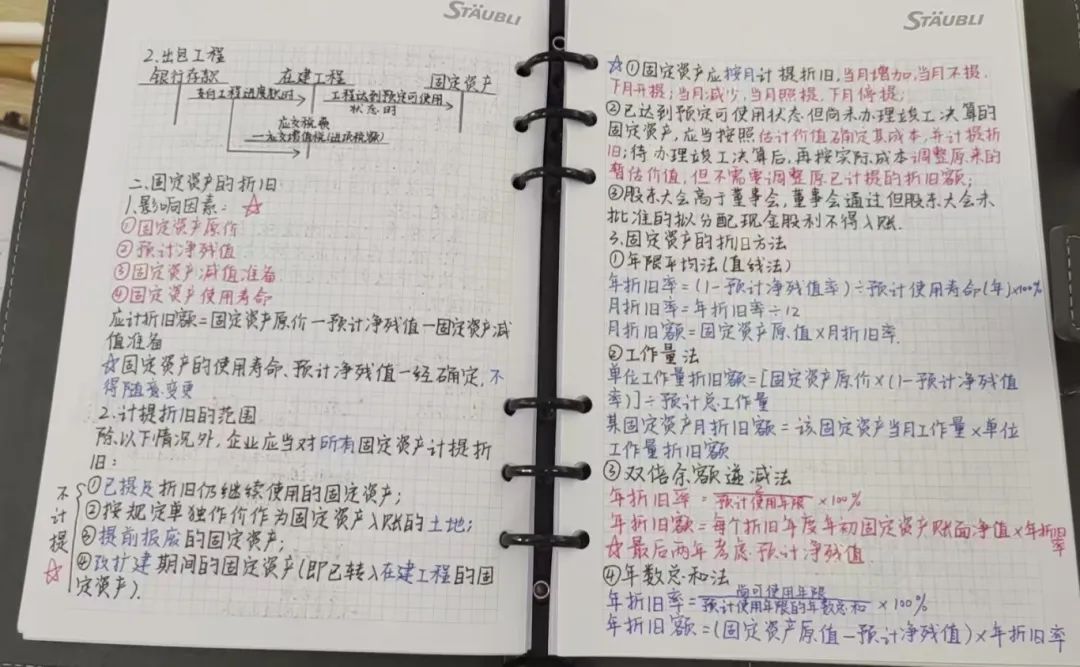 STÄUBLI
2.出包工程
银行存款 在建工程 固定资产
支付工程进度款时 工程达到预定可使用
状态时
应交税费
—应交增值税(进项税额)
二.固定资产的折旧
1.影响因素: ☆
①固定资产原价
②预计净残值
③固定资产减值准备
④固定资产使用寿命
应计折旧额=固定资产原价-预计净残值-固定资产减
值准备
☆固定资产的使用寿命、预计净残值一经确定,不
得随意变更
2.计提折旧的范围
除以下情况外,企业应当对所有固定资产计提折
旧:
不计提☆
①已提足折旧仍继续使用的固定资产;
②按规定单独作价作为固定资产入账的土地;
③提前报废的固定资产;
④改扩建期间的固定资产(即已转入在建工程的固
定资产).
STÄUBLI
☆①固定资产应按月计提折旧,当月增加,当月不提,
下月开提;当月减少,当月照提,下月停提;
②已达到预定可使用状态但尚未办理竣工决算的
固定资产,应当按照估计价值确定其成本,并计提折
旧;待办理竣工决算后,再按实际成本调整原来的
暂估价值,但不需要调整原已计提的折旧额;
③股东大会高于董事会,董事会通过但股东大会未
批准的拟分配现金股利不得入账.
3.固定资产的折旧方法
①年限平均法(直线法)
年折旧率=(1-预计净残值率)÷预计使用寿命(年)×100%
月折旧率=年折旧率÷12
月折旧额=固定资产原值×月折旧率.
②工作量法
单位工作量折旧额=[固定资产原价×(1-预计净残值
率)]÷预计总工作量
某固定资产月折旧额=该固定资产当月工作量×单位
工作量折旧额
③双倍余额递减法
年折旧率=预计使用年限×100%
年折旧额=每个折旧年度年初固定资产账面净值×年折旧
率
☆最后两年考虑预计净残值
④年数总和法
尚可使用年限
年折旧率=预计使用年限的年数总和×100%
年折旧额=(固定资产原值-预计净残值)×年折旧率